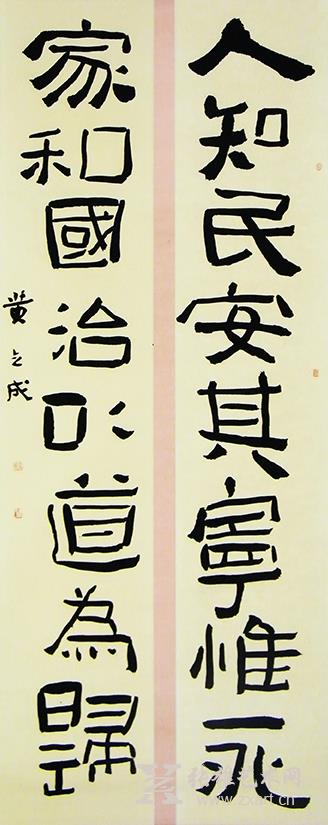 人知民安其寧惟永
家和國治以道為歸
黄之成
张雄艺术网
www.zxart.cn